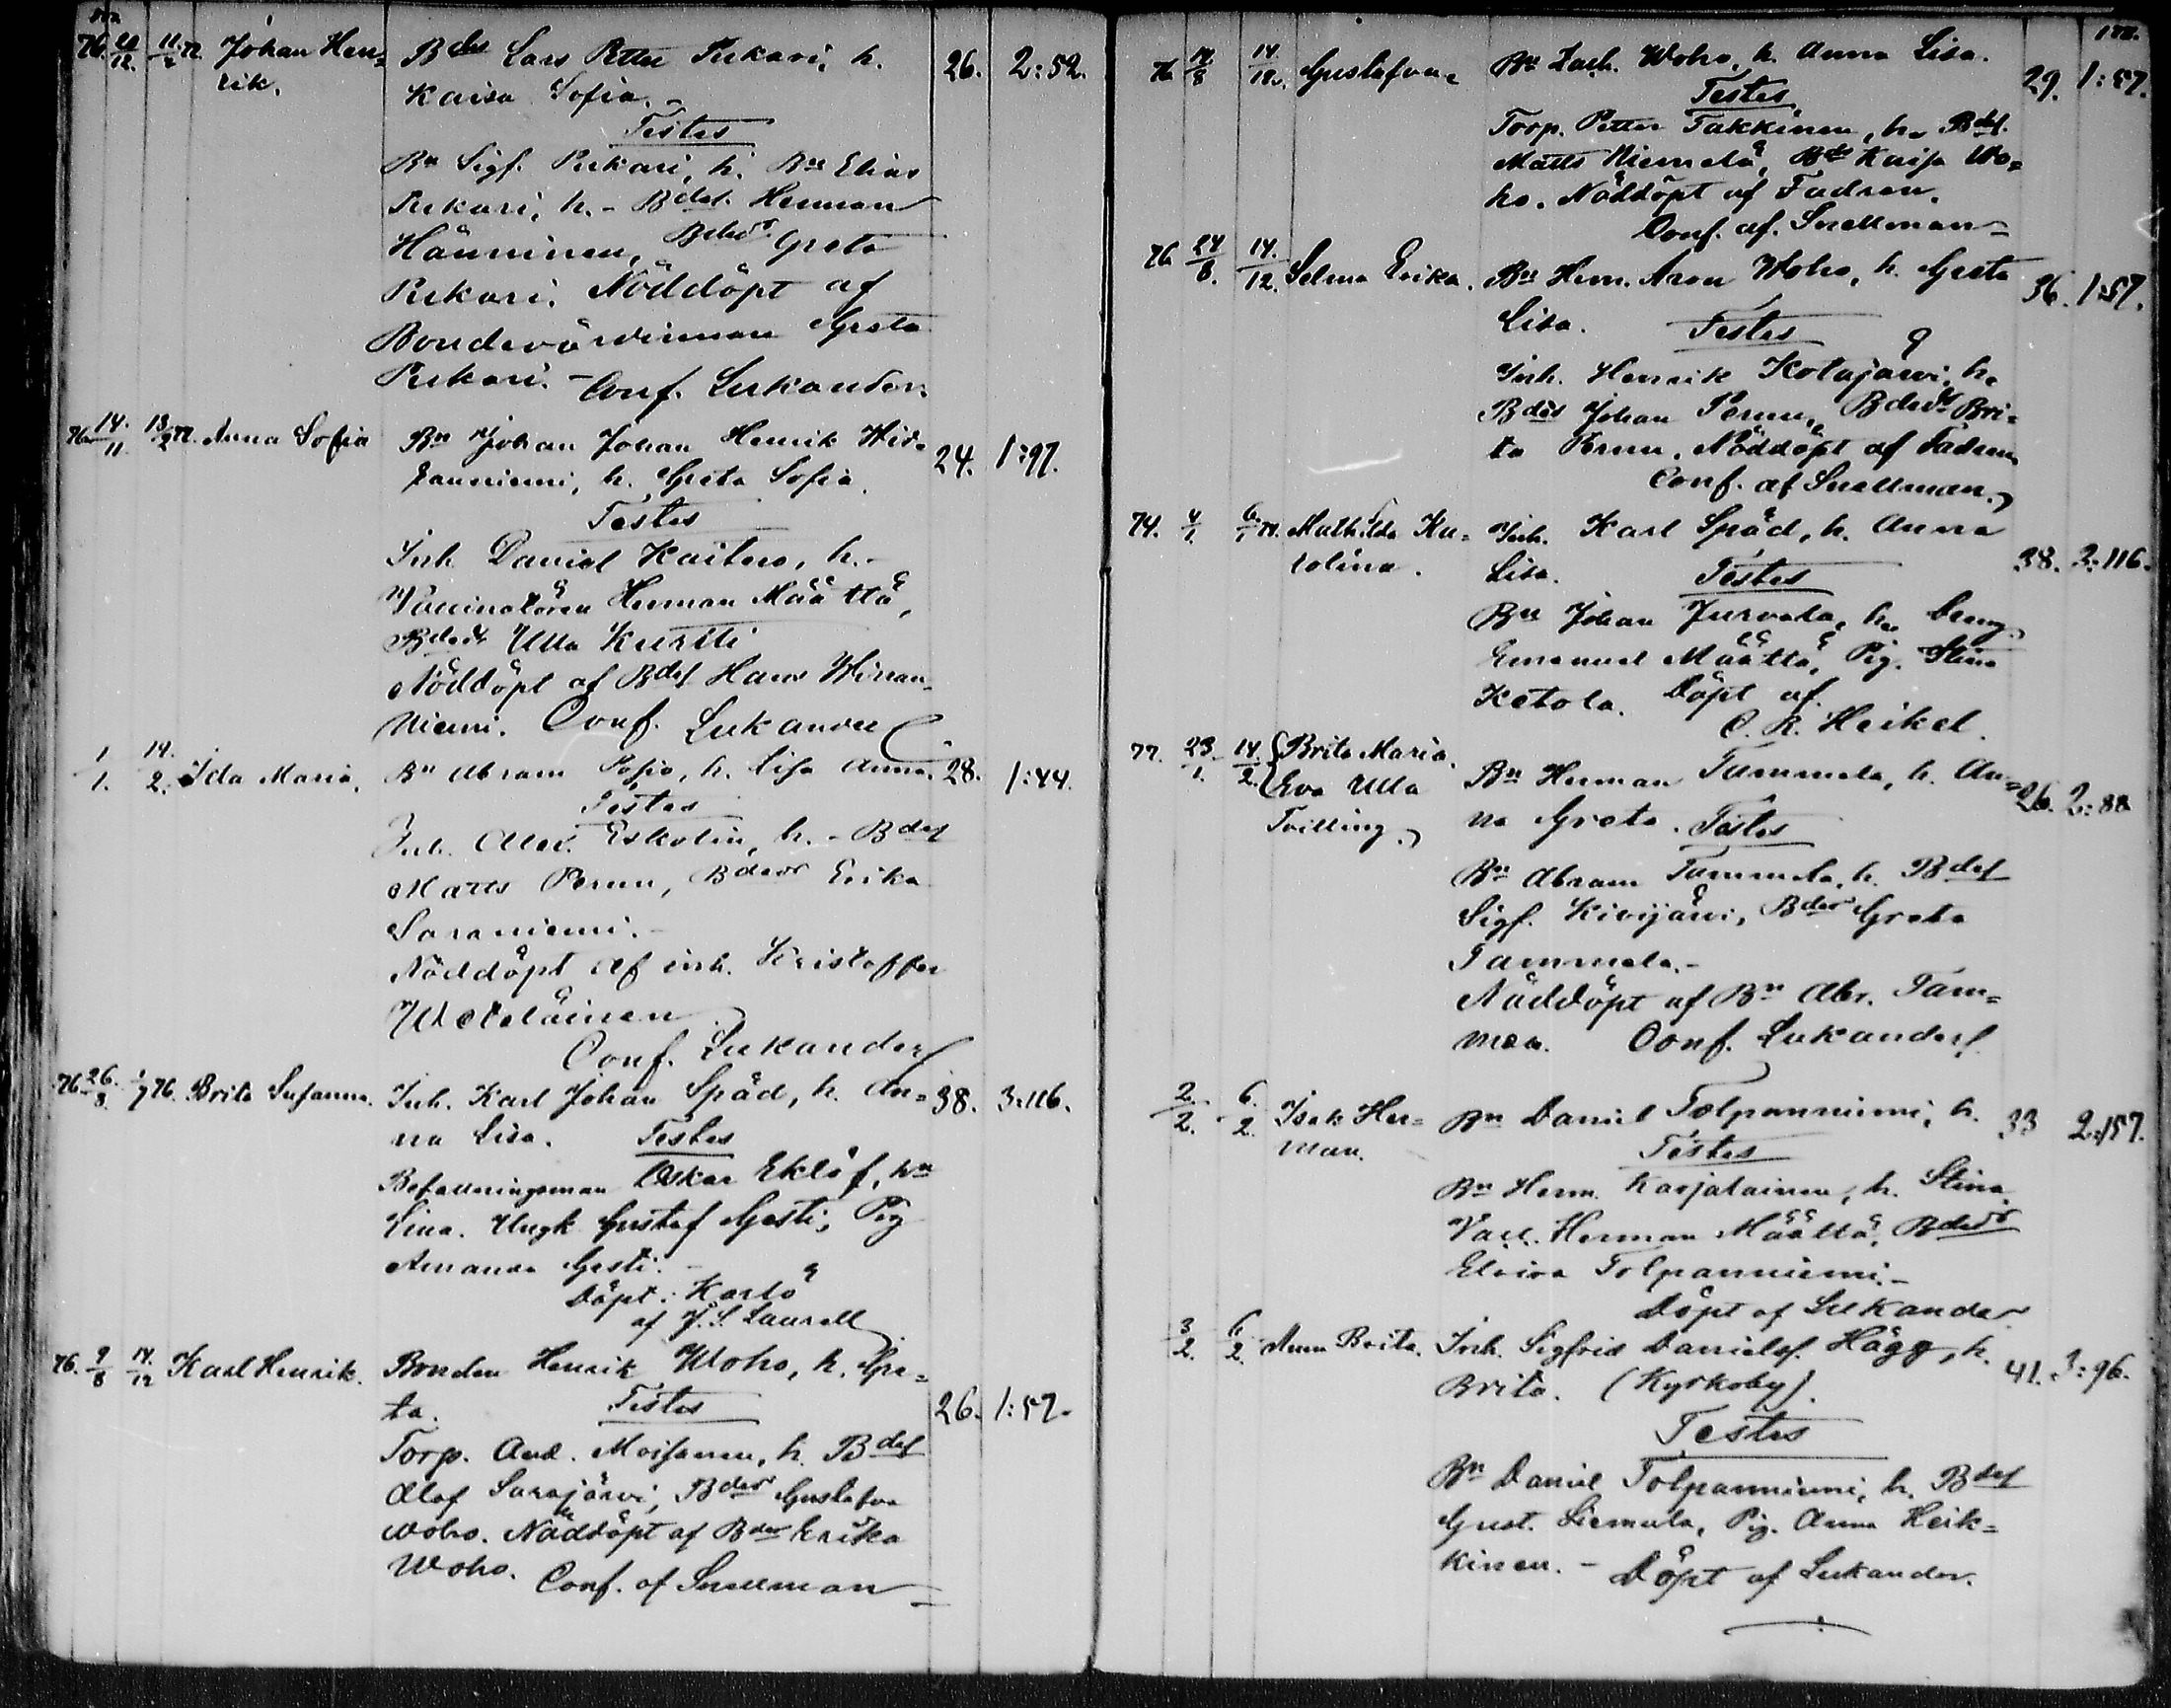 76. 20/12. 11/2 77. Johan Hen= Bdes Lars Petter Pekari, h. 26. 2:52.
rik. Kaisa Sofia.
Testes
Bn Sigf. Pekari, h. Bn Elias
Pekari, h. - Bdes. Herman
Hänninen, Bdedr Greta
Pekari. Nöddöpt af
Bondevärdinnan Greta
Pekari. - Conf. Lukander.
76. 14./11. 13/2 77. Anna Sofia Bn Johan Johan Henrik Wir= 24. 1:97.
ranniemi, h. Greta Sofia.
Testes
Inh. Daniel Kaitero, h. -
Vaccinatören Herman Määttä,
Bdedr Ulla Kurtti
Nöddöpt af Bdes Hans Wirran=
niemi. Conf. Lukander
1/1. 14./2. Ida Maria. Bn Abram Posio, h. Lisa Anna. 28. 1:44.
Testes
Inh. Alex. Eskolin, h. - Bdes
Matts Perunen, Bdedr Erika
Saraniemi. -
Nöddöpt af inh. Kristoffer
Weteläinen
Conf. Lukander
76 26./8. 1/9 76. Brita Susanna. Inh. Karl Johan Späd, h. An= 38. 3:116.
na Lisa. Testes
Befallningsman Oskar Eklöf, hn
Lina. Ungk Gustaf Gesti, Pig
Amanda Gesti. -
Döpt i Karlö
af J. S. Laurell
76. 9/8 14./12 Karl Henrik. Bonden Henrik Woho, h. Gre=
ta. Testes 26. 1:57.
Torp. And. Moisanen, h. Bdes
Olof Sarajärvi, Bdedr Gustafva
Woho. Nöddöpt af Bdedr Erika
Woho. Conf. af Snellman
76 19/8 14/12. Gustafva Bn Zach. Woho, h. Anna Lisa. 29. 1:57.
Testes
Torp. Petter Takkinen, h. Bdes.
Matts Niemelä, Bdr Kaisa Wo=
ho. Nöddöpt af Fadren.
Conf. af. Snellman
76 24/8. 14./12. Selma Erika. Bn Hem. Aron Woho, h. Greta 36. 1:57.
Lisa. Testes
Inh. Henrik Kotajärvi, h.
Bdes Johan Perunen, Bdedr Bri=
ta Perunen. Nöddöpt af Fadren
Conf. af Snellman.
74. 4/1 6/1 74. Mathilda Ka= Inh. Karl Späd, h. Anna 38. 3:116.
rolina. Lisa. Testes
Bn Johan Jurvala, h. Dreng
Emanuel Määttä, Pig. Stina
Ketola. Döpt af
C. R. Heikel.
77. 23./1. 14./2. Brita Maria.
Eva Ulla Bn Herman Tammela, h. An= 26. 2:88
Tvilling. na Greta. Testes
Bn Abram Tammela, h. Bdes
Sigf. Kivijärvi, Bdedr Greta
Tammela. -
Nöddöpt af Bn Abr. Tam=
mela. Conf. Lukander
2./2. 6./2. Isak Her= Bn Daniel Tolpanniemi, h. 33 2:157.
man. Testes
Bn Herm. Karjalainen, h. Stina.
Vacc. Herman Määttä, Bdedr
Elvira Tolpanniemi. -
Döpt af Lukander
3/2. 6./2. Anna Brita. Inh. Sigfrid Danielsf. Hägg, h. 41. 3:96.
Brita. (Kyrkoby).
Testes
Bn Daniel Tolpanniemi, h. Bdes
Gust. Siemula, Pig. Anna Heik=
kinen. - Döpt af Lukander.